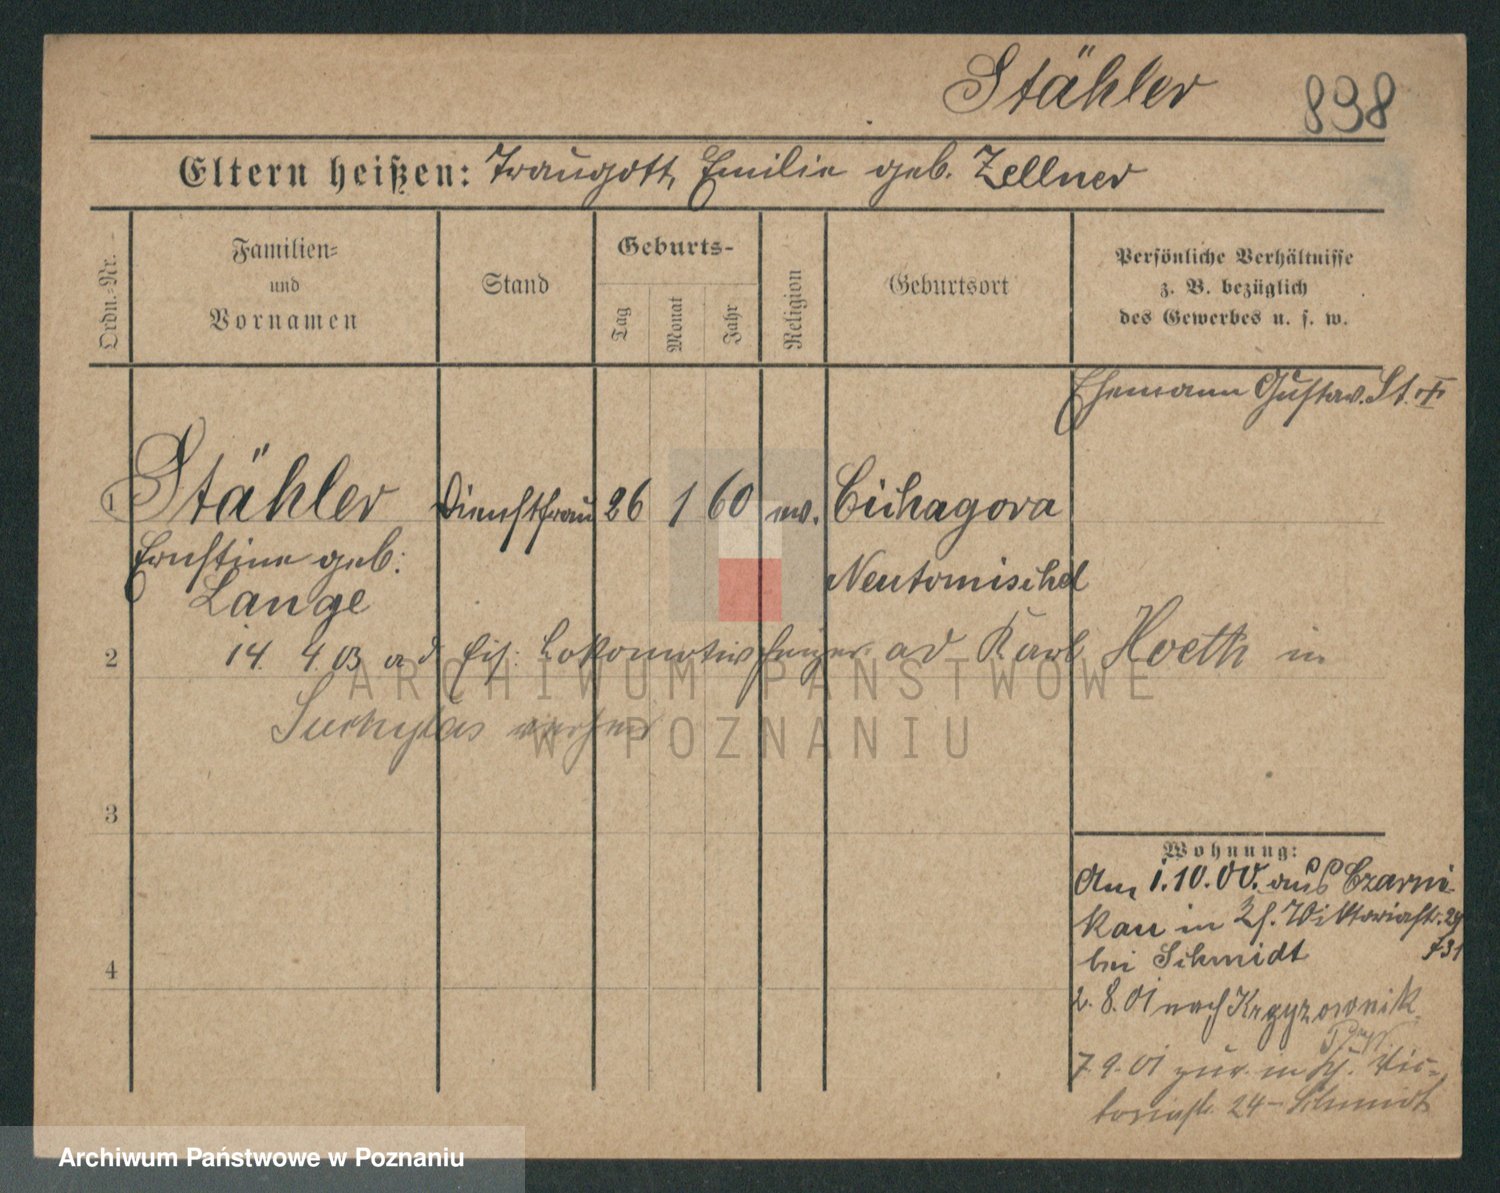 Stähler 898
Eltern heißen: Traugott, Emilie geb. Zellner
Ordn.-Nr.
Familien-
und
Vornamen
Stand
Geburts-
Tag
Monat
Jahr
Religion
Geburtsort
Persönliche Verhältnisse
z. B. bezüglich
des Gewerbes u. s. w.
Ehemann Gustav St. †
1 Stähler Dienstfrau 26 1 60 ev. Cichagora
Ernstine geb: Neutomischel
Lange
2 14. 4. 03 Lokomotivheizer Karl Hoeth in
Suchylas
ARCHIWUM PAŃSTWOWE
W POZNANIU
3
Wohnung:
Am 1.10.00. aus Czarni-
kau in Viktoriastr. 24
bei Schmidt
4
2. 8. 01 nach Krzyzownik
7. 9. 01 zur. in Vic-
toriastr. 24 - Schmidt
Archiwum Państwowe w Poznaniu